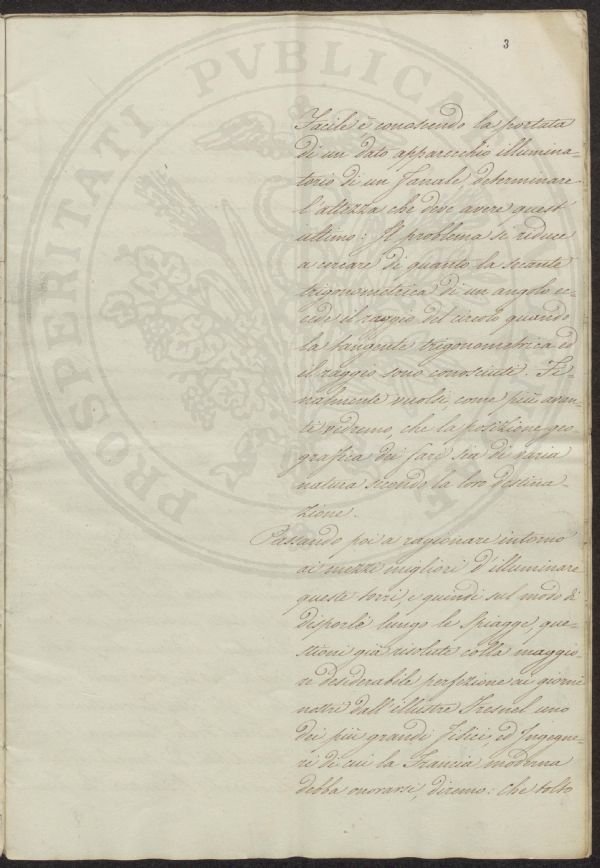 3
Facile è, conoscendo la portata
di un dato apparecchio illumina=
torio di un Fanale, determinare
l'altezza che deve avere quest'
ultimo: Il problema si riduce
a cercare di quanto la secante
trigonometrica di un angolo ec=
cede il raggio del circolo quando
la tangente trigonometrica ed
il raggio sono conosciuti. Fi=
nalmente vuolsi, come più avan=
ti vedremo, che la posizione geo=
grafica dei fari sia di varia
natura secondo la loro destina=
zione.
Passando poi a ragionare intorno
ai mezzi migliori d'illuminare
queste torri, e quindi sul modo di
disporle lungo le spiagge, que=
stioni già risolute colla maggio=
re desiderabile perfezione ai giorni
nostri dall'illustre Fresnel uno
dei più grandi Fisici, ed Ingegne=
ri di cui la Francia moderna
debba onorarsi, diremo: che tolto
PROSPERITATI PVBLICAE